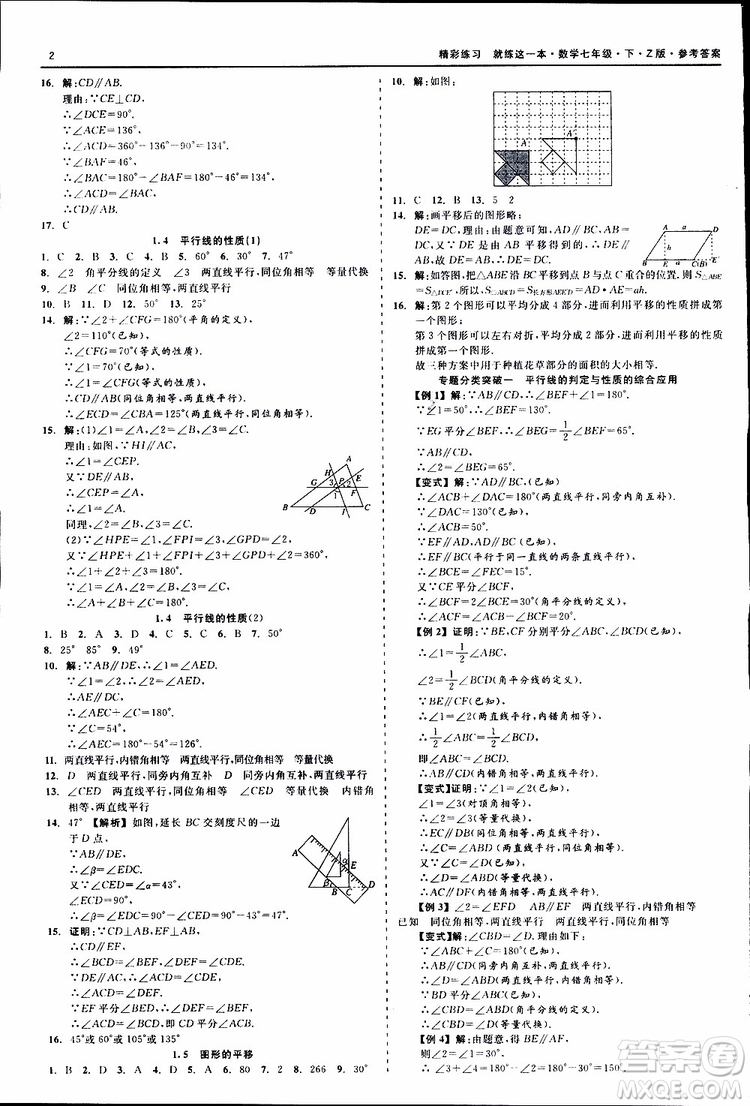 2
精彩练习 就练这一本·数学七年级·下·Z版·参考答案
16. 解:CD∥AB.
理由:∵CE⊥CD,
∴∠DCE=90°.
∵∠ACE=136°,
∴∠ACD=360°-136°-90°=134°.
∵∠BAF=46°,
∴∠BAC=180°-∠BAF=180°-46°=134°,
∴∠ACD=∠BAC,
∴CD∥AB.
17. C
1.4 平行线的性质(1)
1. C 2. B 3. C 4. B 5. 60° 6. 30° 7. 47°
8. ∠2 角平分线的定义 ∠3 两直线平行,同位角相等 等量代换
9. ∠B ∠C 同位角相等,两直线平行
10. B 11. D 12. 50° 13. 25°
14. 解:∵∠2+∠CFG=180°(平角的定义),
∴∠CFG=70°(等式的性质).
∵∠1=70°(已知),
∴∠1=∠CFG(等量代换),
∴CD∥AB(同位角相等,两直线平行),
∴∠ECD=∠CBA=125°(两直线平行,同位角相等).
15. 解:(1)∠A=∠1,∠B=∠2.
理由:如图,∵HI∥AC,
∴∠1=∠CEP.
又∵DF∥AB,
∴∠A=∠CEP.
∴∠A=∠1.
同理,∠2=∠B.
(2)∵∠HPE=∠1,∠FPI=∠3,∠GPD=∠2.
又∵∠HPE+∠1+∠FPI+∠3+∠GPD+∠2=360°,
∴∠1+∠2+∠3=180°.
∵∠1=∠A,∠2=∠B,
∴∠A+∠B+∠3=180°.
1.4 平行线的性质(2)
1. B 2. A 3. D 4. D 5. C 6. C 7. B
8. 25° 85° 9. 49°
10. 解:∵AB∥DE,∴∠A=∠AED.
∵∠A=∠D,∴∠AED=∠D,
∴AE∥DC,
∴∠AEC+∠C=180°.
∵∠C=54°,
∴∠AEC=180°-54°=126°.
11. 两直线平行,内错角相等 两直线平行,同位角相等 等量代换
12. D 两直线平行,同旁内角互补 D 同旁内角互补,两直线平行
13. ∠CED 两直线平行,同位角相等 ∠CED 等量代换 内错角相等,两直线平行
14. 47° 【解析】如图,延长BC交刻度尺的一边于D点,
∵AB∥DE,
∴∠β=∠EDC.
又∵∠CED=∠α=43°,
∠ECD=90°,
∴∠β=∠EDC=90°-∠CED=90°-43°=47°.
15. 证明:∵CD⊥AB,EF⊥AB,
∴CD∥EF,
∴∠BEF=∠BCD.
∵AC∥DE,
∴∠ACD=∠CDE.
又∵CD∥EF,
∴∠CDE=∠DEF,
∴∠ACD=∠DEF.
∵EF平分∠BED,
∴∠BEF=∠DEF,
∴∠BCD=∠ACD,
∴CD平分∠ACB.
16. 45°或60°或105°或135°
1.5 图形的平移
1. B 2. D 3. B 4. D 5. A 6. 80 7. 2 8. 266 9. 30°
10. 解:如图:
11. C 12. B 13. 5 2
14. 解:画平移后的图形略;
DE=DC,DE∥DC.
理由:由题意可知,AB∥DC,AB=DC,AB=DE,
AB∥DE,故DE=DC,DE∥DC.
15. 解:如答图,把△ABE沿BC平移到点B与点C重合的位置.则S△ABE=S△DCE',∴S▱ABCD=S长方形AEE'D=AD·AE=ah.
16. 解:第2个图形可以平均分成4部分,进而利用平移的性质拼成第一个图形;
第3个图形可以左右对折,平均分成两部分,进而利用平移的性质拼成第一个图形.
故三种方案中用于种植花草部分的面积的大小相等.
专题分类突破一 平行线的判定与性质的综合应用
【例1】解:∵AB∥CD,∴∠BEF+∠1=180°.
∵∠1=50°,∴∠BEF=130°.
∵EG平分∠BEF,∴∠BEG=1/2∠BEF=65°.
∵AB∥CD,
∴∠2=∠BEG=65°.
【变式】解:∵AD∥BC(已知),
∴∠ACB+∠DAC=180°(两直线平行,同旁内角互补).
∵∠DAC=130°(已知),
∴∠ACB=50°.
∵EF∥AD,AD∥BC(已知),
∴EF∥BC(平行于同一条直线的两条直线平行),
∴∠BCE=∠FEC=15°.
又∵CE平分∠BCF,
∴∠BCF=2∠BCE=30°(角平分线的意义),
∴∠ACF=∠ACB-∠BCF=20°.
【例2】证明:∵BE,CF分别平分∠ABC,∠BCD(已知),
∴∠1=1/2∠ABC,
∠2=1/2∠BCD(角平分线的定义).
∵BE∥CF(已知),
∴∠1=∠2(两直线平行,内错角相等).
∴1/2∠ABC=1/2∠BCD,
即∠ABC=∠BCD,
∴AB∥CD(内错角相等,两直线平行).
【变式】证明:∵∠1=∠2(已知),
∠1=∠3(对顶角相等),
∴∠2=∠3(等量代换),
∴EC∥DB(同位角相等,两直线平行),
∴∠C=∠ABD(两直线平行,同位角相等).
又∵∠C=∠D(已知),
∴∠D=∠ABD(等量代换),
∴AC∥DF(内错角相等,两直线平行).
【例3】∠2=∠EFD ∠ABC=∠BCD
已知 同位角相等,两直线平行 两直线平行,内错角相等
【变式】解:∠CBD=∠D.理由如下:
∵∠C+∠ABC=180°,
∴CD∥AB,∴∠D=∠ABD.
∵BD平分∠ABC,
∴∠CBD=∠ABD,
∴∠CBD=∠D.
【例4】解:由题意,得BE∥AF,
则∠1+∠2+∠3+∠4=180°.
∵∠2=60°,∠3=30°,